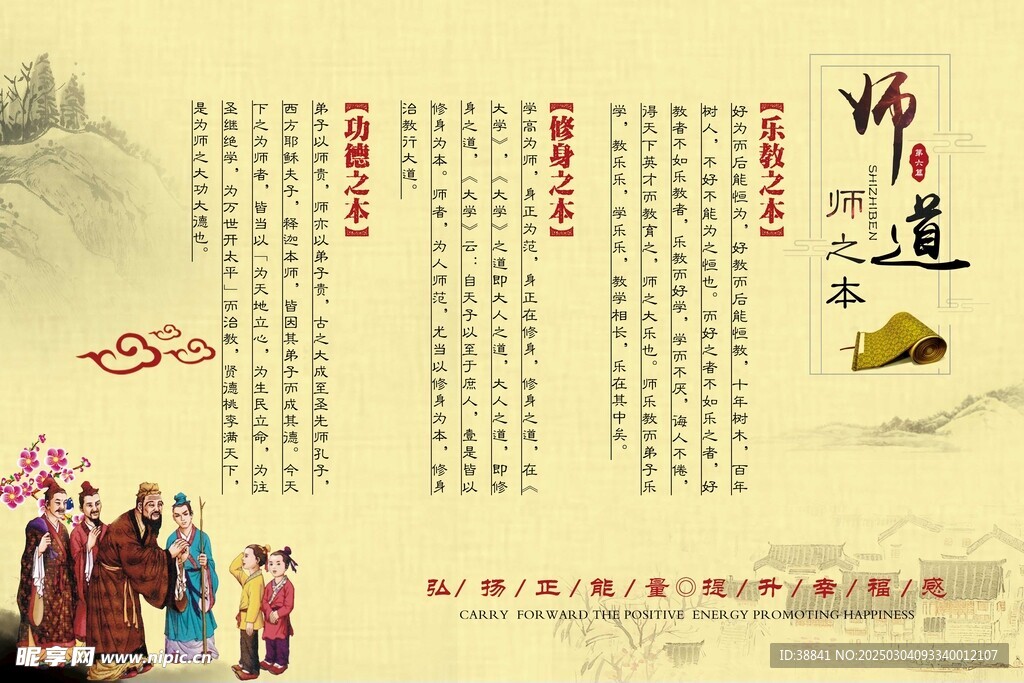 师道
第六篇
SHIZHIBEN
师之本
【乐教之本】
好为而后能恒为，好教而后能恒教，十年树木，百年
树人，不好不能为之恒也。而好之者不如乐之者，好
教者不如乐教者，乐教而好学，学而不厌，诲人不倦，
得天下英才而教育之，师之大乐也。师乐教而弟子乐
学，教乐乐，学乐乐，教学相长，乐在其中矣。
【修身之本】
学高为师，身正为范，身正在修身，修身之道，在《
大学》，《大学》之道即大人之道，大人之道，即修
身之道，《大学》云：自天子以至于庶人，壹是皆以
修身为本。师者，为人师范，尤当以修身为本，修身
治教行大道。
【功德之本】
弟子以师贵，师亦以弟子贵，古之大成至圣先师孔子，
西方耶稣夫子，释迦本师，皆因其弟子而成其德。今天
下之为师者，皆当以「为天地立心，为生民立命，为往
圣继绝学，为万世开太平」而治教，贤德桃李满天下，
是为师之大功大德也。
弘/扬/正/能/量◎提/升/幸/福/感
CARRY FORWARD THE POSITIVE ENERGY PROMOTING HAPPINESS
昵享网 www.nipic.cn
ID:38841 NO:20250304093340012107